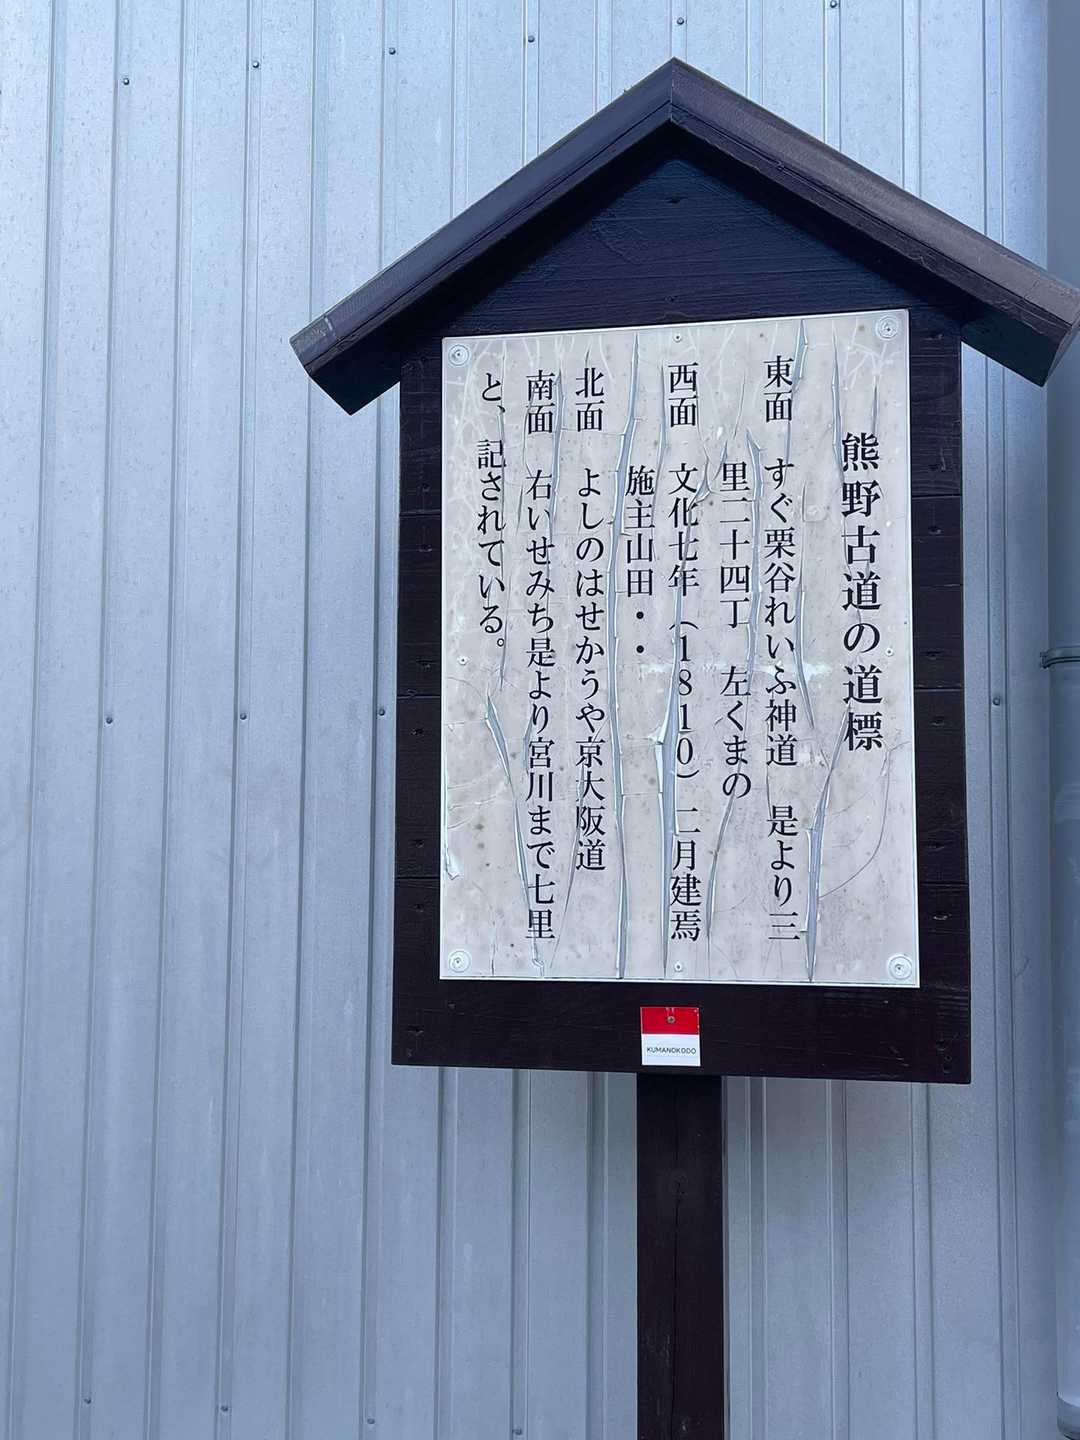 熊野古道の道標
東面　すぐ栗谷れいふ神道　是より三
里二十四丁　左くまの
西面　文化七年（1810）二月建焉
施主山田・・
北面　よしのはせかうや京大阪道
南面　右いせみち是より宮川まで七里
と、記されている。
KUMANOKODO